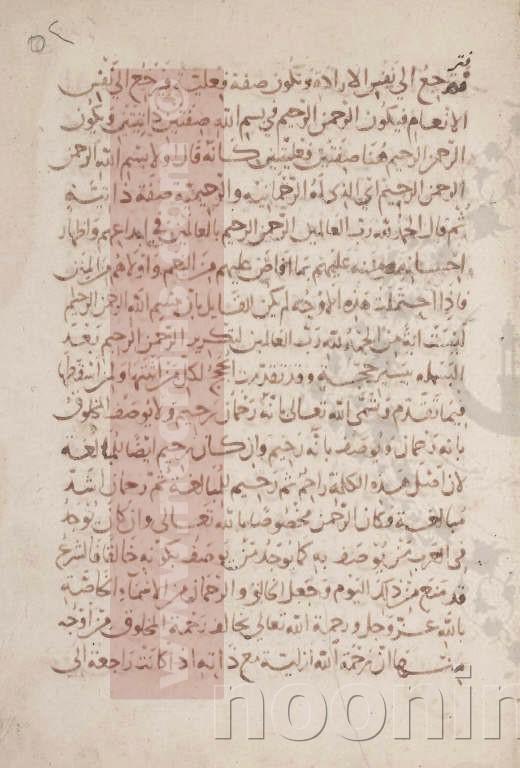 فترجع الى نفس الارادة وتكون صفة فعلية وترجع الى نفس
الانعام فيكون الرحمن الرحيم في بسم الله صفتين ذاتيتين وتكون
الرحمن الرحيم هنا صفتين فعليتين كانه قال ولا بسم الله الرحمن
الرحمن الرحيم اي الذي له الرحمانية والرحيمية صفة ذاتية
ثم قال الحمد لله رب العالمين الرحمن الرحيم بالعالمين في ابداعهم واظهار
احسانه عليهم بما افاض عليهم من النعم واولاهم من المنن
فاذا احتملت هذه الاوجه لم يكن لقايل بان بسم الله الرحمن الرحيم
ليست اية من الحمد لله رب العالمين لتكرير الرحمن الرحيم بعد
البسملة بيسير حجة وقد تقدمت الحجج لكل من اثبتها ولمن اسقطها
فيما تقدم واسمى الله تعالى بانه رحمان رحيم ولا يوصف المخلوق
بانه رحمان ويوصف بانه رحيم وان كان رحيم ايضا للمبالغة
لان اصل هذه الكلمة راحم ثم رحيم للمبالغة ثم رحمان اشد
مبالغة وكان الرحمن مخصوصا بالله تعالى وان كان يوجد
في العرب من يوصف به كما يوجد من يوصف بكونه خالقا فالشرع
قد منع من ذلك اليوم وجعل الخالق والرحمان من الاسماء الخاصة
بالله عز وجل ورحمة الله تعالى يخالف رحمة المخلوق من اوجه
منها ان رحمة الله ازلية مع ذاته اذا كانت راجعة الى
www.noormags.com
noonin